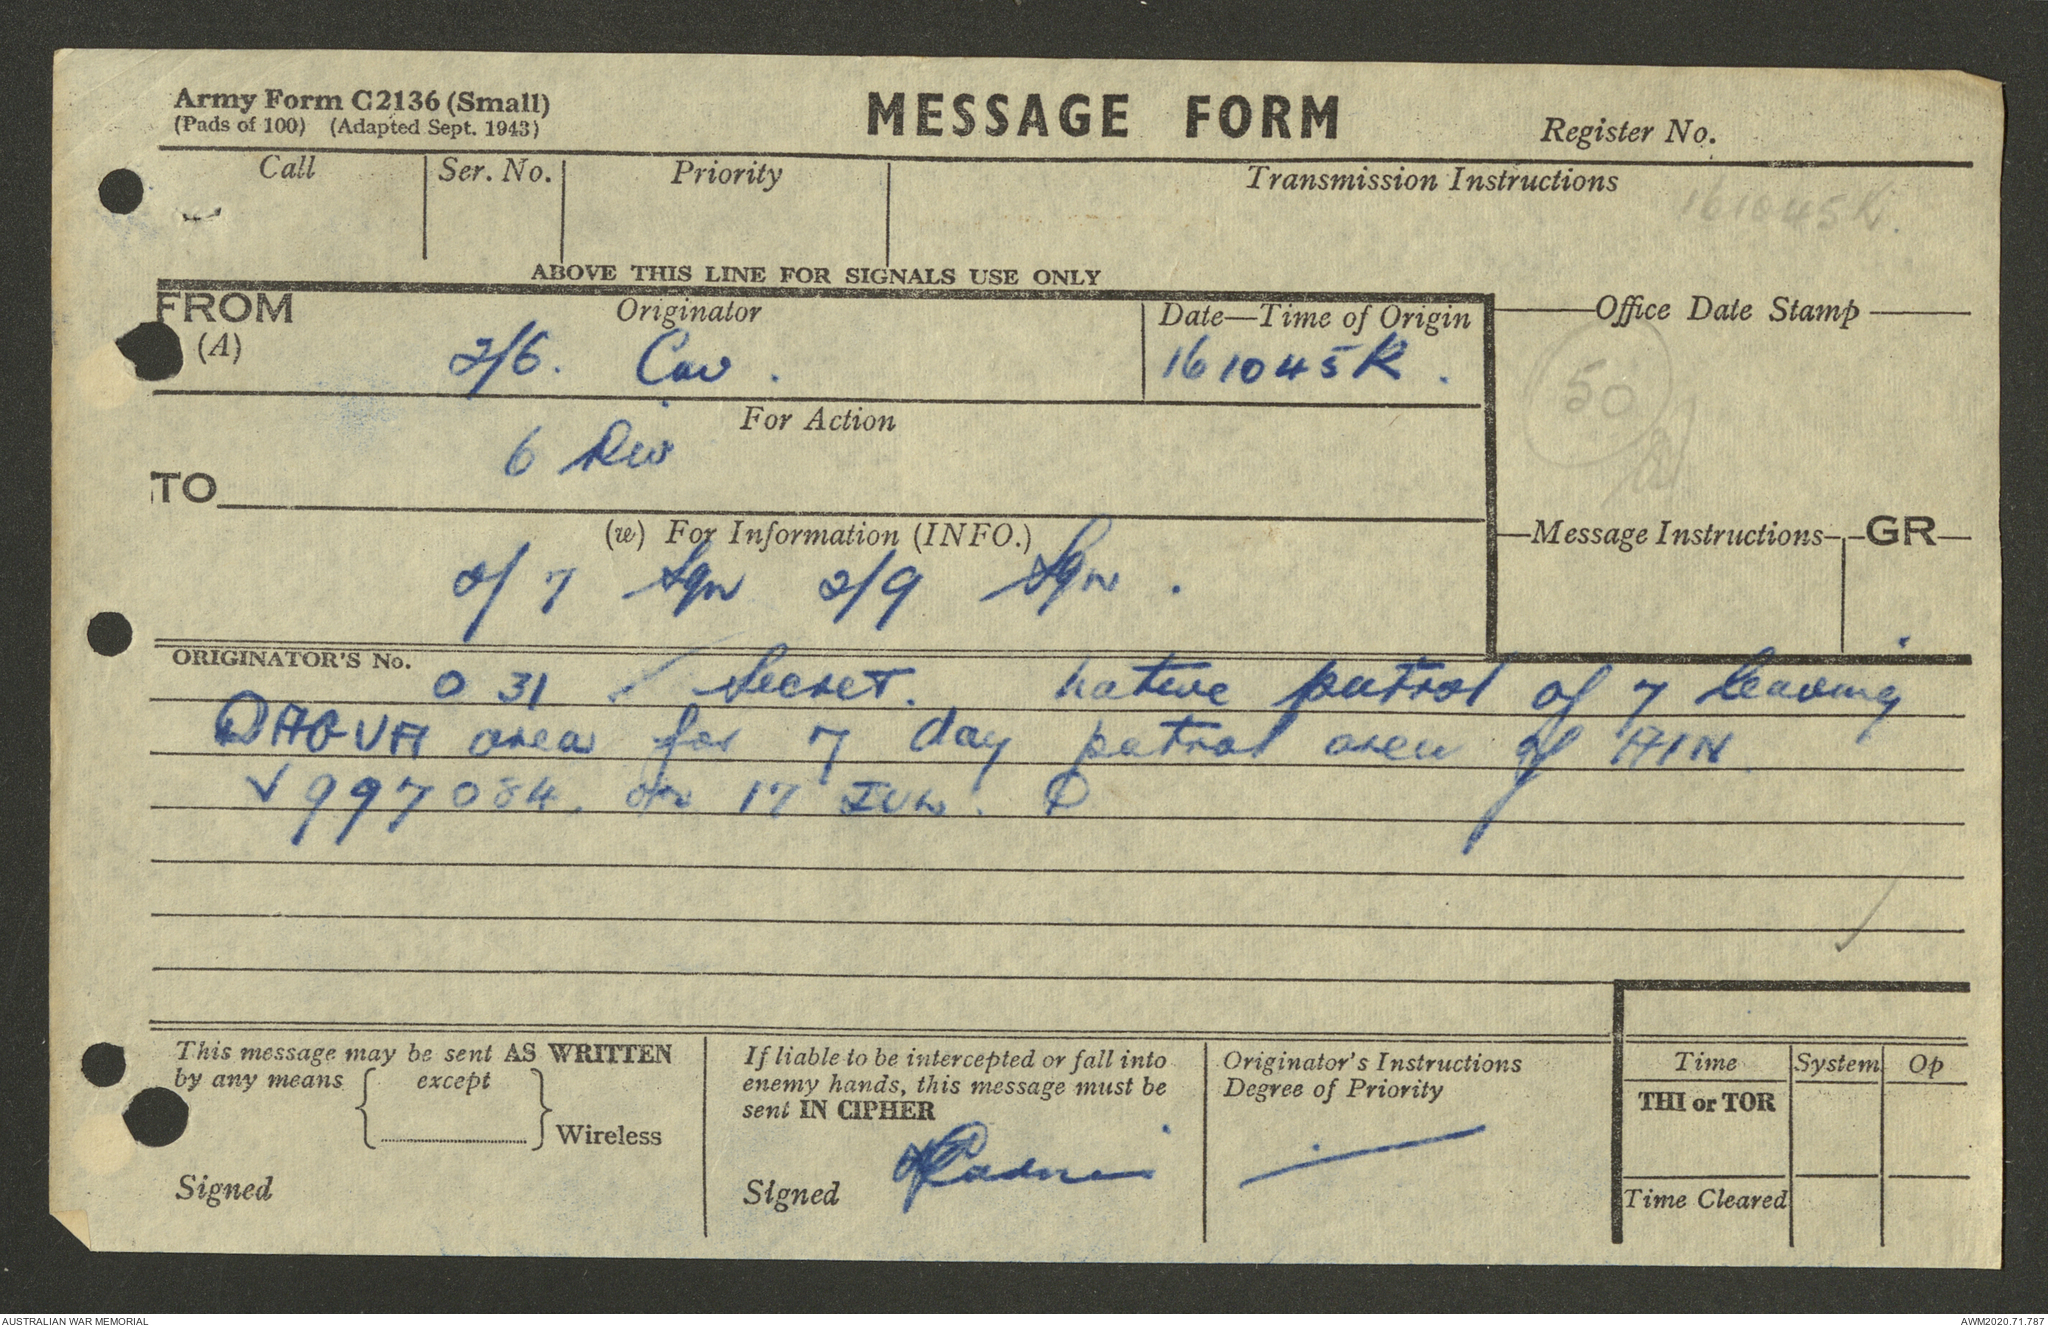 Army Form C2136 (Small)
(Pads of 100) (Adapted Sept. 1943)
MESSAGE FORM
Register No.
Call
Ser. No.
Priority
Transmission Instructions
161045K.
ABOVE THIS LINE FOR SIGNALS USE ONLY
FROM
(A)
Originator
2/6. Cav.
Date—Time of Origin
161045K.
Office Date Stamp
50
For Action
6 Div
TO
(w) For Information (INFO.)
2/7 Sqn 2/9 Sqn.
Message Instructions
GR
ORIGINATOR'S No.
O 31 Secret. native patrol of 7 leaving
DAGUA area for 7 day patrol area of AIN
V997084. on 17 Jun.
This message may be sent AS WRITTEN
by any means except
Wireless
Signed
If liable to be intercepted or fall into
enemy hands, this message must be
sent IN CIPHER
Signed
Originator's Instructions
Degree of Priority
Time
System
Op
THI or TOR
Time Cleared
AUSTRALIAN WAR MEMORIAL
AWM2020.71.787